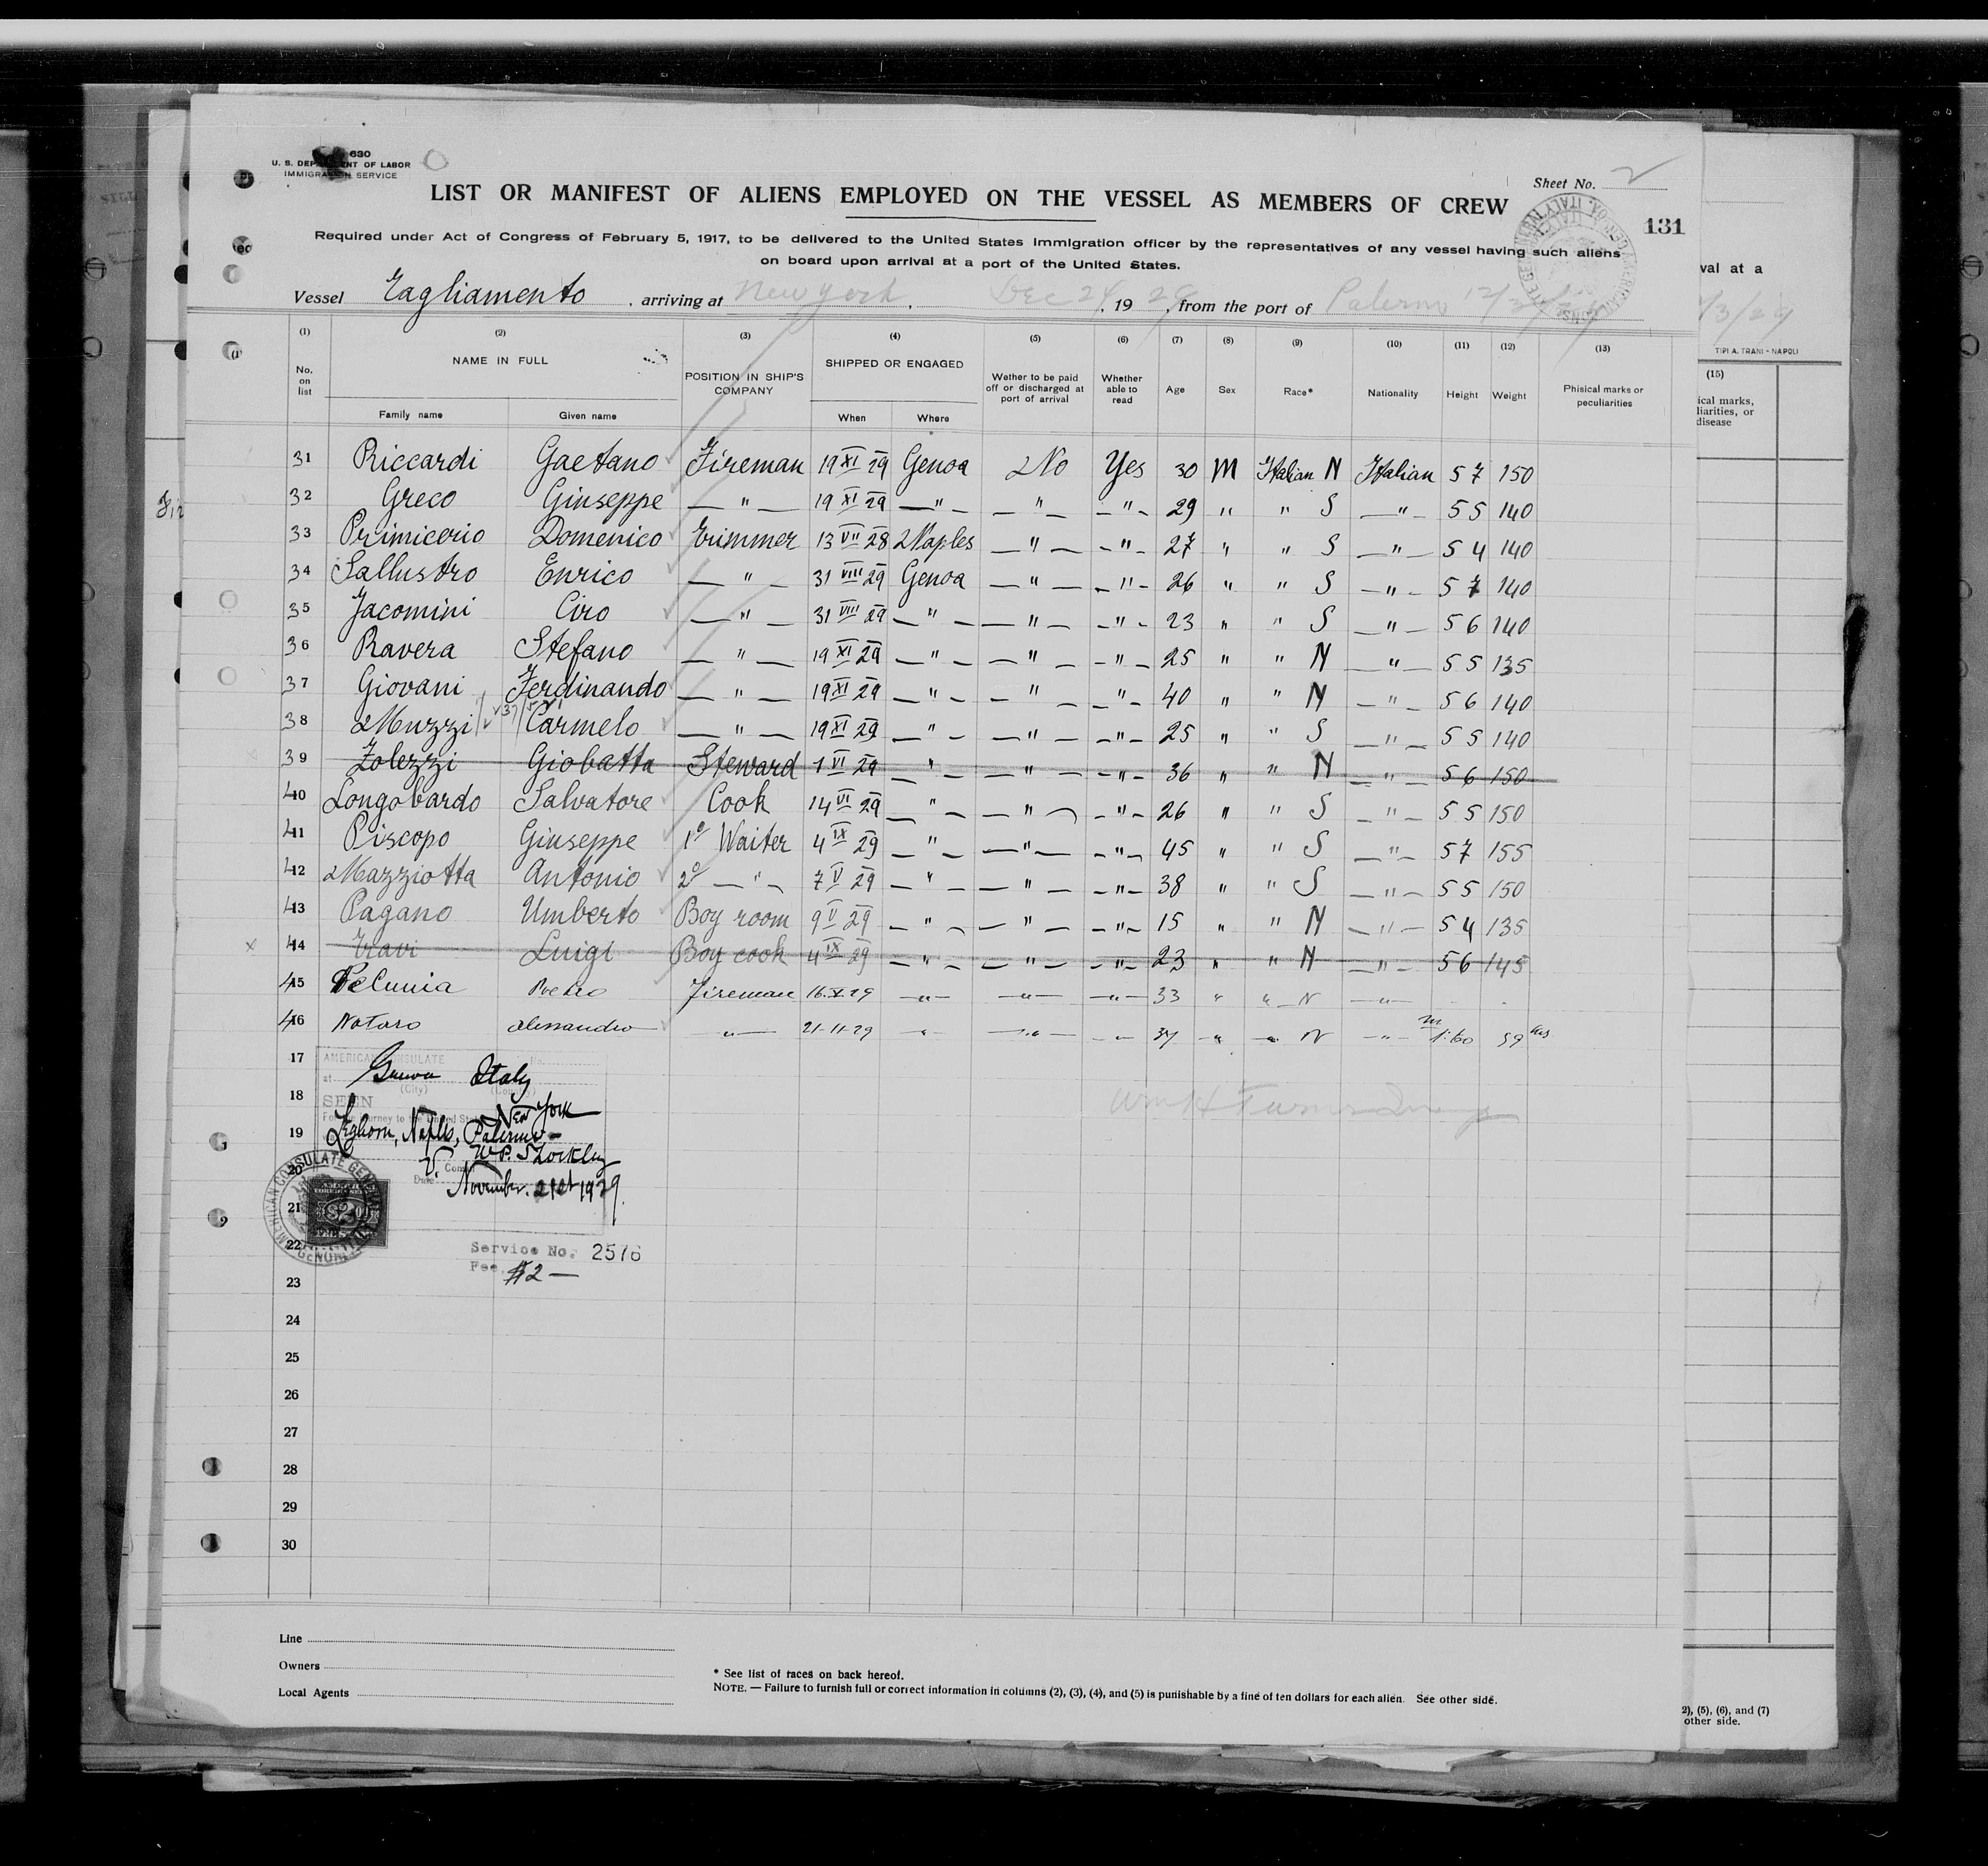 630
U. S. DEP NT OF LABOR
IMMIGRATION SERVICE
Sheet No. 2
LIST OR MANIFEST OF ALIENS EMPLOYED ON THE VESSEL AS MEMBERS OF CREW
131
Required under Act of Congress of February 5, 1917, to be delivered to the United States Immigration officer by the representatives of any vessel having such aliens
on board upon arrival at a port of the United States.
val at a
Vessel Tagliamento , arriving at New York , Dec 24 , 19 29 , from the port of Palermo
TIPI A. TRANI - NAPOLI
(1) (2) (3) (4) (5) (6) (7) (8) (9) (10) (11) (12) (13) (15)
No. on list NAME IN FULL POSITION IN SHIP'S COMPANY SHIPPED OR ENGAGED Wether to be paid off or discharged at port of arrival Whether able to read Age Sex Race* Nationality Height Weight Phisical marks or peculiarities
Family name Given name When Where
ical marks,
liarities, or
disease
31 Riccardi Gaetano Fireman 19 XI 29 Genoa No Yes 30 M Italian N Italian 5 7 150
32 Greco Giuseppe — " — 19 XI 29 — " — — " — — " — 29 " " S — " — 5 5 140
33 Primicerio Domenico Trimmer 13 VII 28 Naples — " — — " — 27 " " S — " — 5 4 140
34 Sallustro Enrico — " — 31 VIII 29 Genoa — " — — " — 26 " " S — " — 5 7 140
35 Jacomini Ciro — " — 31 VIII 29 — " — — " — — " — 23 " " S — " — 5 6 140
36 Ravera Stefano — " — 19 XI 29 — " — — " — — " — 25 " " N — " — 5 5 135
37 Giovani Ferdinando — " — 19 XI 29 — " — — " — — " — 40 " " N — " — 5 6 140
38 Muzzi Carmelo — " — 19 XI 29 — " — — " — — " — 25 " " S — " — 5 5 140
39 Zolezzi Giobatta Steward 1 VI 29 — " — — " — — " — 36 " " N — " — 5 6 150
40 Longobardo Salvatore Cook 14 VI 29 — " — — " — — " — 26 " " S — " — 5 5 150
41 Piscopo Giuseppe 1º Waiter 4 IX 29 — " — — " — — " — 45 " " S — " — 5 7 155
42 Mazziotta Antonio 2º — " — 7 V 29 — " — — " — — " — 38 " " S — " — 5 5 150
43 Pagano Umberto Boy room 9 V 29 — " — — " — — " — 15 " " N — " — 5 4 135
x 44 Travi Luigi Boy cook 4 IX 29 — " — — " — — " — 23 " " N — " — 5 6 145
45 Fireman 16. X. 29 — " — — " — — " — 33 " " N — " —
46 Notaro Alessandro — " — 21-11-29 — " — — " — — " — 37 " " N — " — m 1.60 59 kgs
17 AMERICAN CONSULATE No.
at Genoa Italy
(City) (Country)
18 SEEN
For the journey to the United States New York
19 Leghorn, Naples, Palermo
20 V. Consul
Date November 21st 1929.
21
22
Service No. 2576
Fee $2 —
23
24
25
26
27
28
29
30
Line
Owners
Local Agents
* See list of races on back hereof.
NOTE. — Failure to furnish full or correct information in columns (2), (3), (4), and (5) is punishable by a fine of ten dollars for each alien. See other side.
2), (5), (6), and (7)
other side.